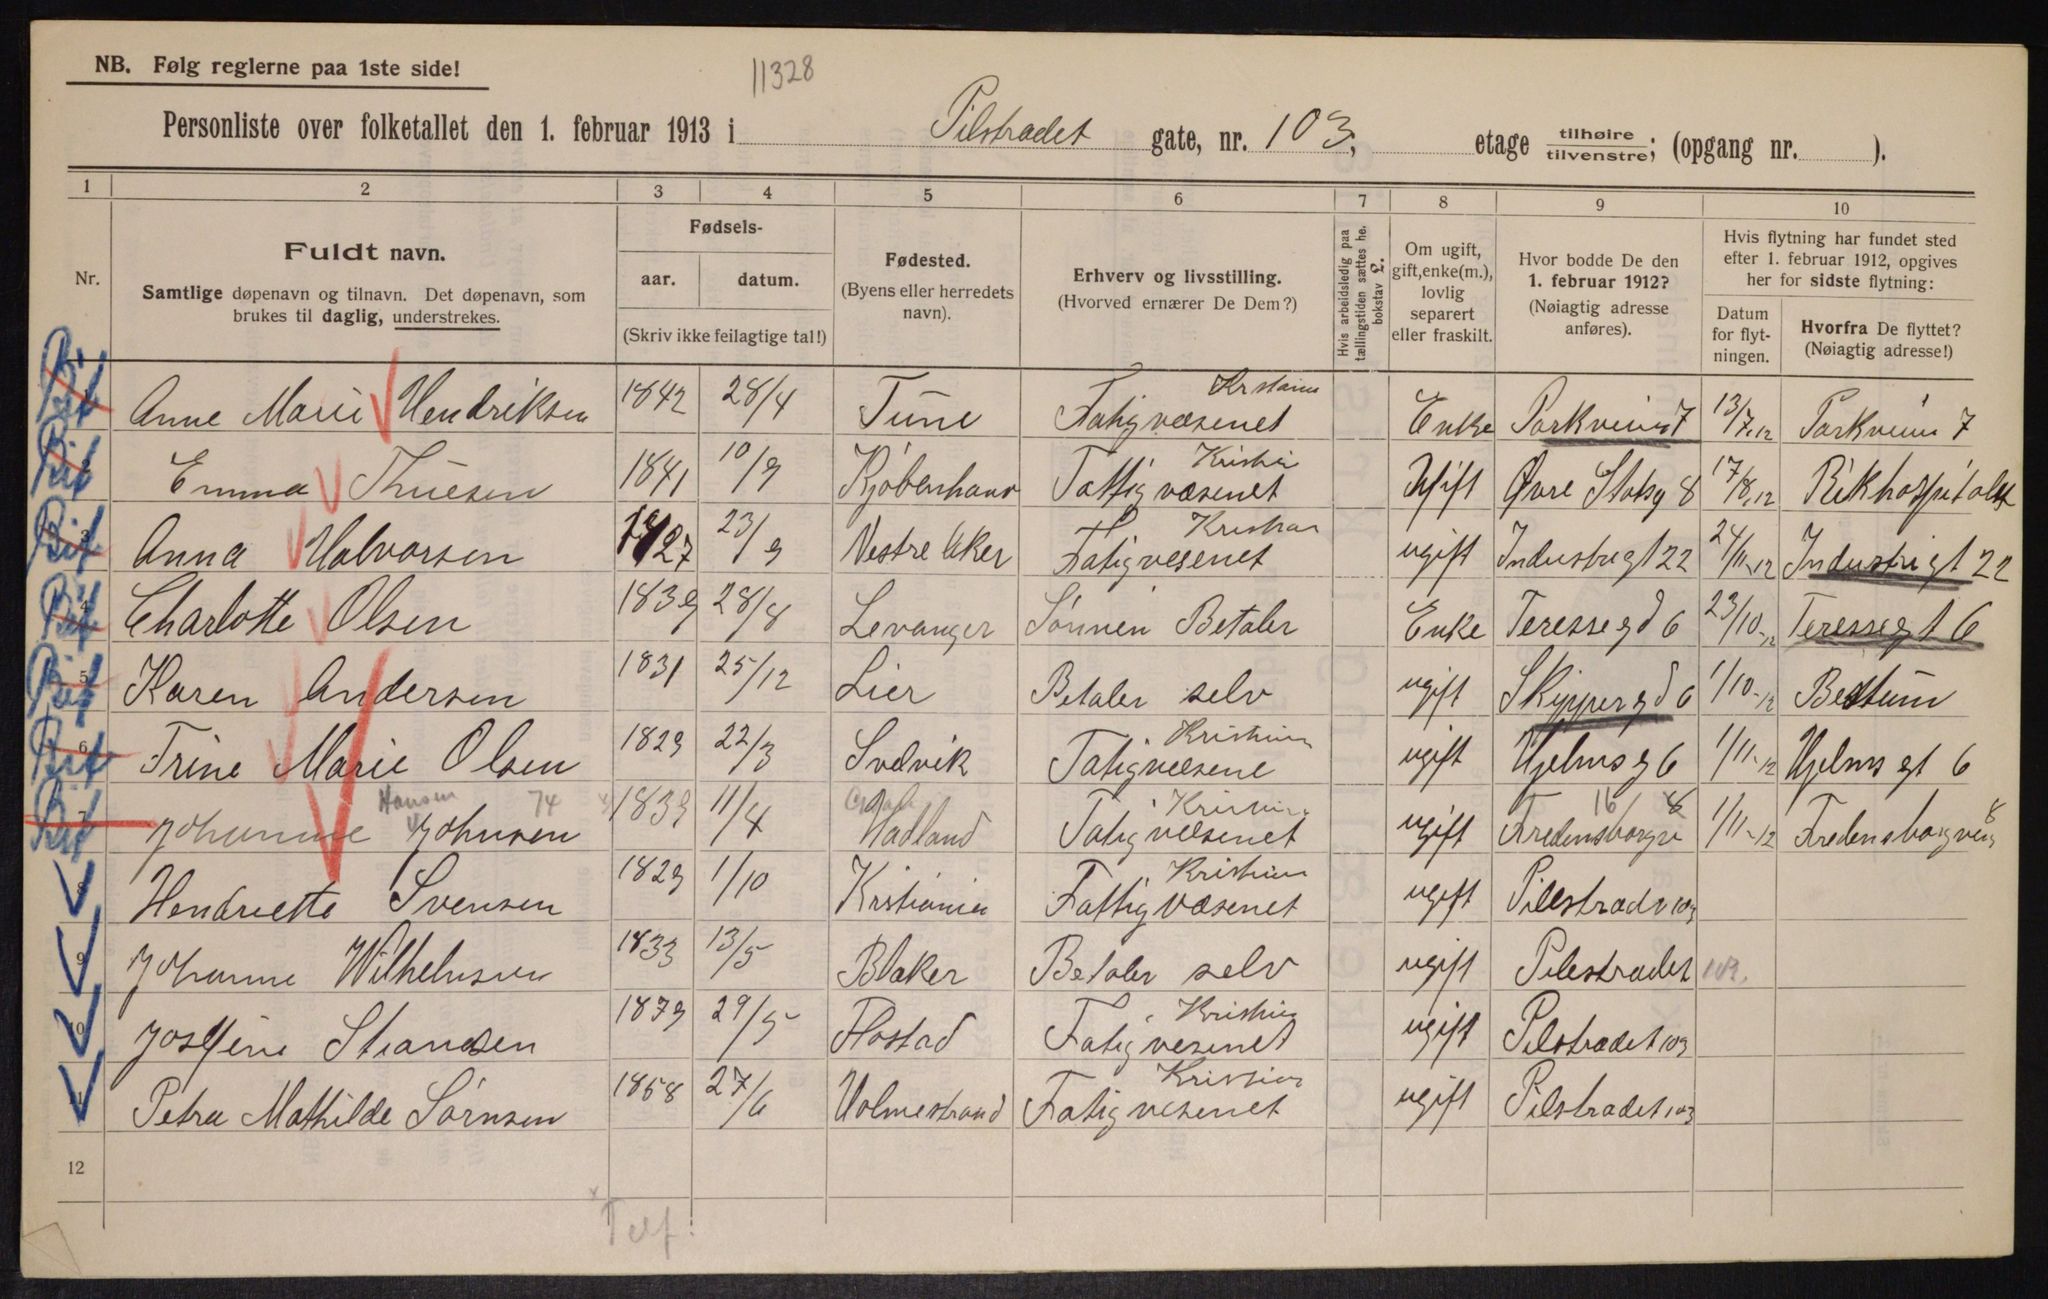 11328
NB. Følg reglerne paa 1ste side!
Personliste over folketallet den 1. februar 1913 i Pilstradet gate, nr. 103, etage tilhøire tilvenstre; (opgang nr. ).
1 2 3 4 5 6 7 8 9 10
Nr.
Fuldt navn.
Samtlige døpenavn og tilnavn. Det døpenavn, som
brukes til daglig, understrekes.
Fødsels-
aar. datum.
(Skriv ikke feilagtige tal!)
Fødested.
(Byens eller herredets
navn).
Erhverv og livsstilling.
(Hvorved ernærer De Dem?)
Hvis arbeidsledig paa
tællingstiden sættes he.
bokstav L.
Om ugift,
gift, enke(m.),
lovlig
separert
eller fraskilt.
Hvor bodde De den
1. februar 1912?
(Nøiagtig adresse
anføres).
Hvis flytning har fundet sted
efter 1. februar 1912, opgives
her for sidste flytning:
Datum
for flyt-
ningen.
Hvorfra De flyttet?
(Nøiagtig adresse!)
Anne Marie Hendriksen 1842 28/4 Tune Fatigvæsenet Enke Parkveien 7 13/7.12 Parkveien 7
2 Emma Thuesen 1841 10/9 Kjøbenhavn Fattigvæsenet Ugift Øvre Slotsg 8 17/8.12 Rikhospitalet
3 Anna Halvorsen 1827 23/9 Vestre Aker Fatigvesenet ugift Industrigt 22 24/11-12 Industrigt 22
4 Charlotte Olsen 1839 28/8 Levanger Sønnen Betaler Enke Teressegd 6 23/10-12 Teressegt 6
5 Karen Andersen 1831 25/12 Lier Betaler selv ugift Skippergd 6 1/10-12 Bestum
6 Trine Marie Olsen 1829 22/3 Svelvik Fatigvæsene Kristian ugift Hjelmsg 6 1/11-12 Hjelmsgt 6
Hansen 74
7 Johanne Johnsen 1839 11/4 Hadland Fatigvæsenet ugift Fredensborgv 16 1/11-12 Fredensborgvei 8
8 Hendriette Svensen 1829 1/10 Kristiania Fattigvæsenet Kristian ugift Pilestradv 103
9 Johanne Wilhelmsen 1833 13/5 Blaker Betaler selv ugift Pilestradet 103.
Josefine Strandsen 1879 29/5 Flostad Fatigvesenet Kristian ugift Pilstradet 103
Petra Mathilde Sørnsen 1858 27/6 Holmestrand Fatigvesenet Kristian ugift Pilstradet 103
12
Telf.